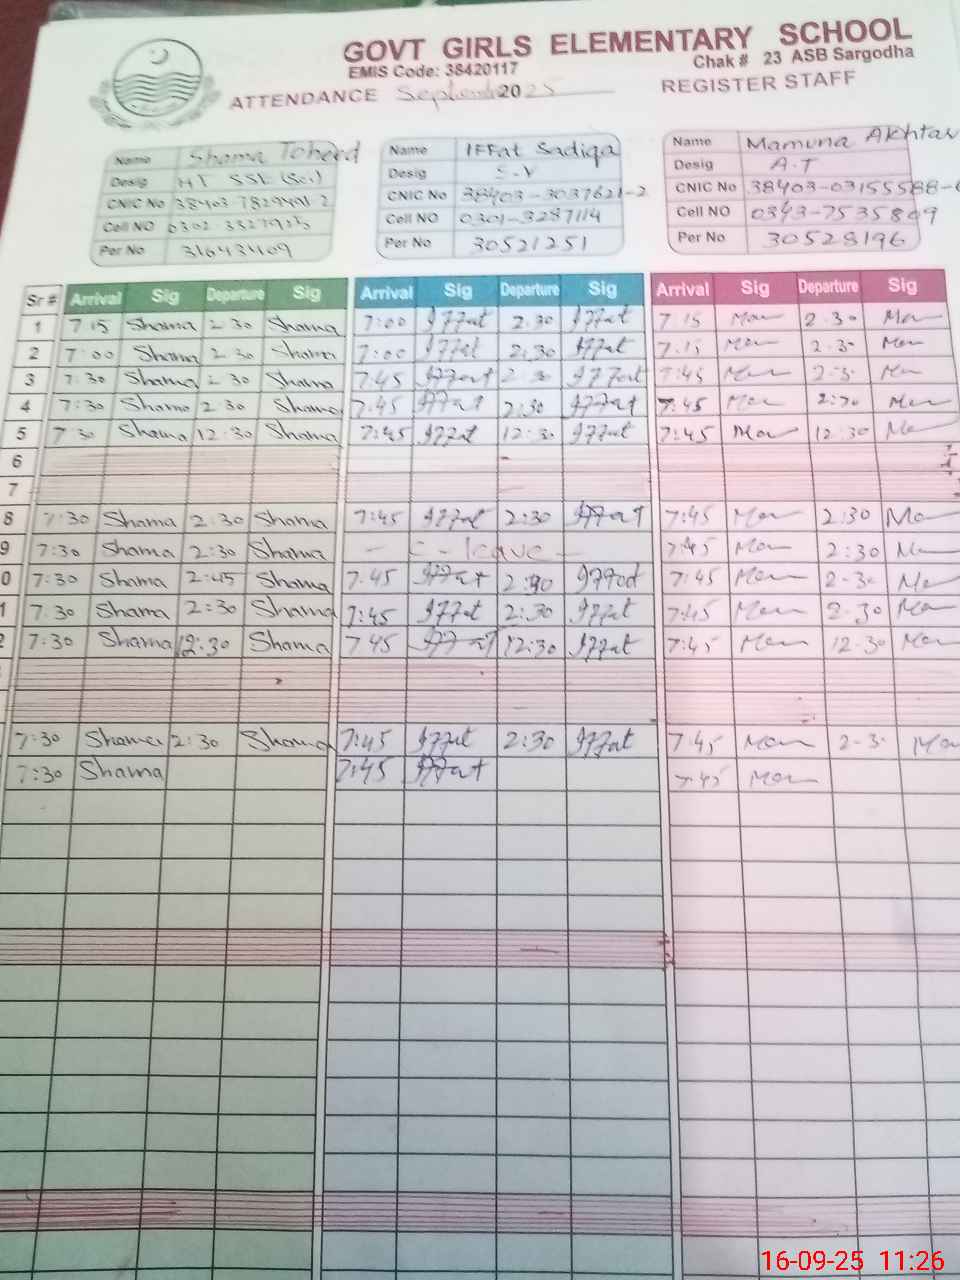 GOVT GIRLS ELEMENTARY SCHOOL
EMIS Code: 38420117 Chak # 23 ASB Sargodha
ATTENDANCE September 2025 REGISTER STAFF
Name Shama Name IFFat Sadiqa Name Mamuna Akhtar
Desig HT SSE (Sci) Desig Desig A.T
CNIC No CNIC No 38403-3037621-2 CNIC No 38403-0315558
Cell NO Cell NO 0301-3287114 Cell NO 0343-7535809
Per No Per No 30521251 Per No 30528196
Sr # Arrival Sig Departure Sig Arrival Sig Departure Sig Arrival Sig Departure Sig
1 7:15 Shama 2:30 Shama 7:00 Iffat 2:30 Iffat 7:15 Mam 2:30 Mam
2 7:00 Shama 2:30 Shama 7:00 Iffat 2:30 Iffat 7:15 Mam 2:3 Mam
3 7:30 Shama 2:30 Shama 7:45 Iffat 2:30 Iffat 7:45 Mam 2:3 Mam
4 7:30 Shama 2:30 Shama 7:45 Iffat 2:30 Iffat 7:45 Mam 2:30 Mam
5 7:30 Shama 12:30 Shama 7:45 Iffat 12:30 Iffat 7:45 Mam 12:30 Mam
6
7
8 7:30 Shama 2:30 Shama 7:45 Iffat 2:30 Iffat 7:45 Mam 2:30 Mam
9 7:30 Shama 2:30 Shama - C - leave - 7:45 Mam 2:30 Mam
0 7:30 Shama 2:45 Shama 7:45 Iffat 2:30 Iffat 7:45 Mam 2:30 Mam
1 7:30 Shama 2:30 Shama 7:45 Iffat 2:30 Iffat 7:45 Mam 2:30 Mam
2 7:30 Shama 12:30 Shama 7:45 Iffat 12:30 Iffat 7:45 Mam 12:30 Mam
7:30 Shama 2:30 Shama 7:45 Iffat 2:30 Iffat 7:45 Mam 2:3 Mam
7:30 Shama 7:45 Iffat 7:45 Mam
16-09-25 11:26